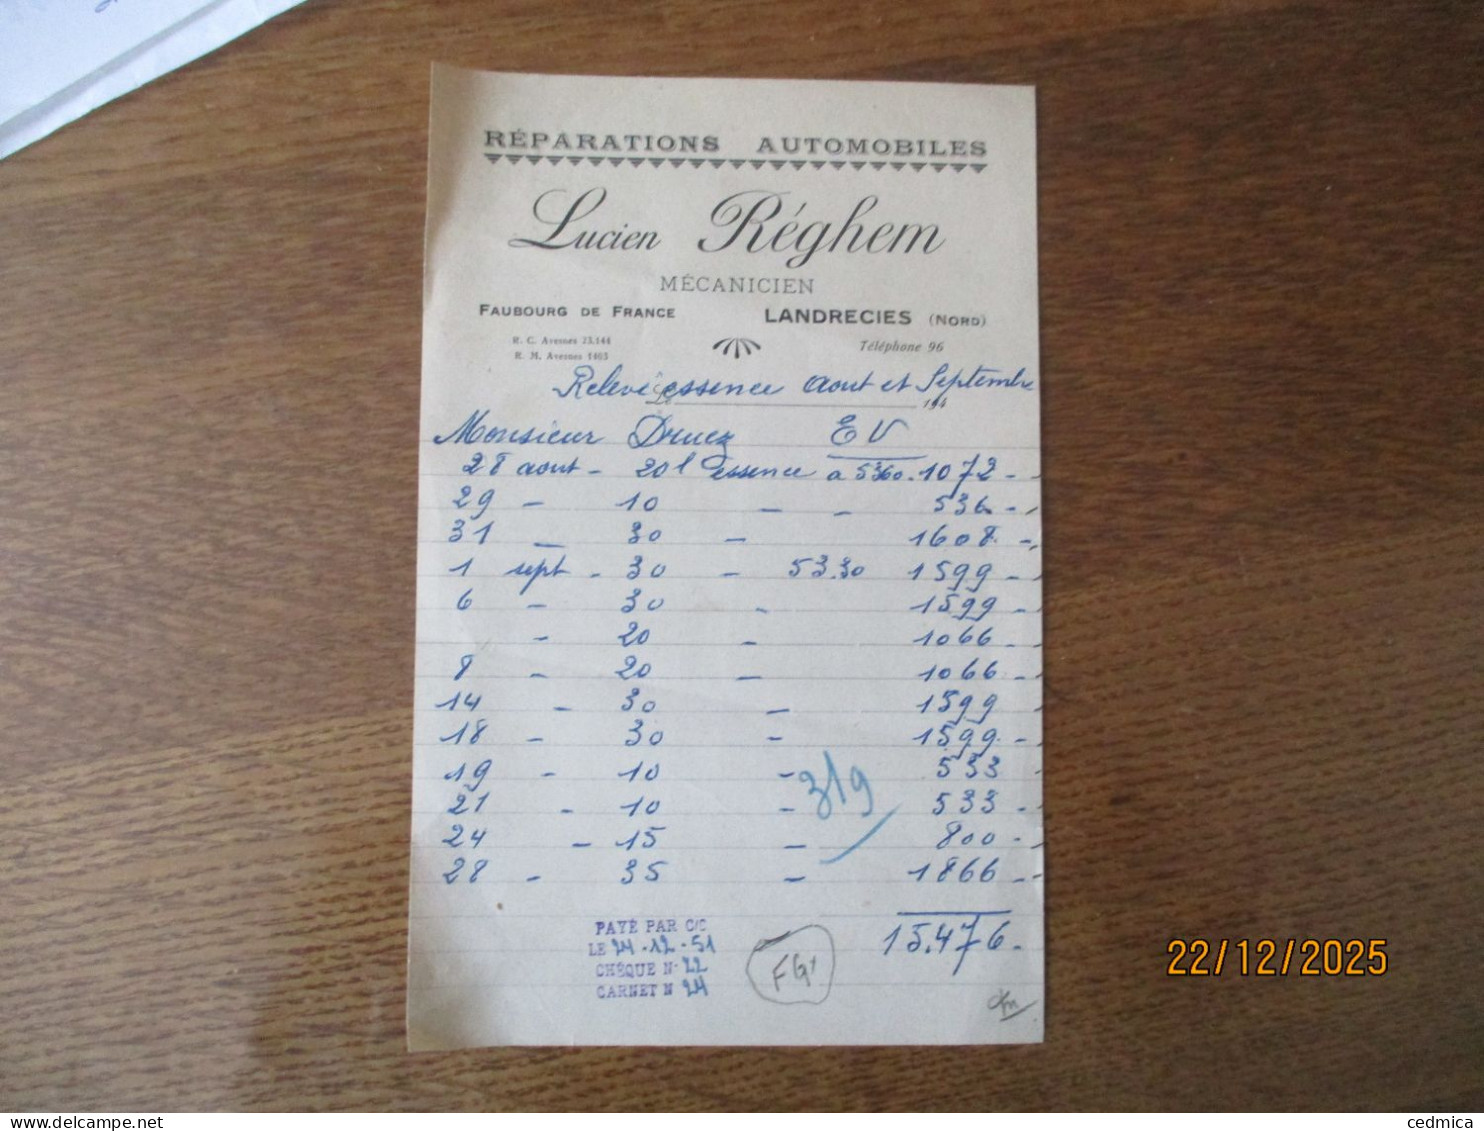 RÉPARATIONS AUTOMOBILES
Lucien Réghem
MÉCANICIEN
FAUBOURG DE FRANCE LANDRECIES (NORD)
R. C. Avesnes 23.144
R. M. Avesnes 1463
Téléphone 96
Relevé essence Aout et Septembre
Le 194
Monsieur Druez E V
28 aout - 20 l essence a 53.60. 1072 -
29 - 10 - - 536 -
31 - 30 - 1608 -
1 sept - 30 - 53.30 1599 -
6 - 30 - 1599 -
- 20 - 1066 -
8 - 20 - 1066 -
14 - 30 - 1599
18 - 30 - 1599 -
19 - 10 - 533
21 - 10 - 533 -
24 - 15 - 800 -
28 - 35 - 1866 -
319
15.476 -
PAYÉ PAR C/C
LE 24-12-51
CHÈQUE N° 22
CARNET N 24
FG
22/12/2025
cedmica